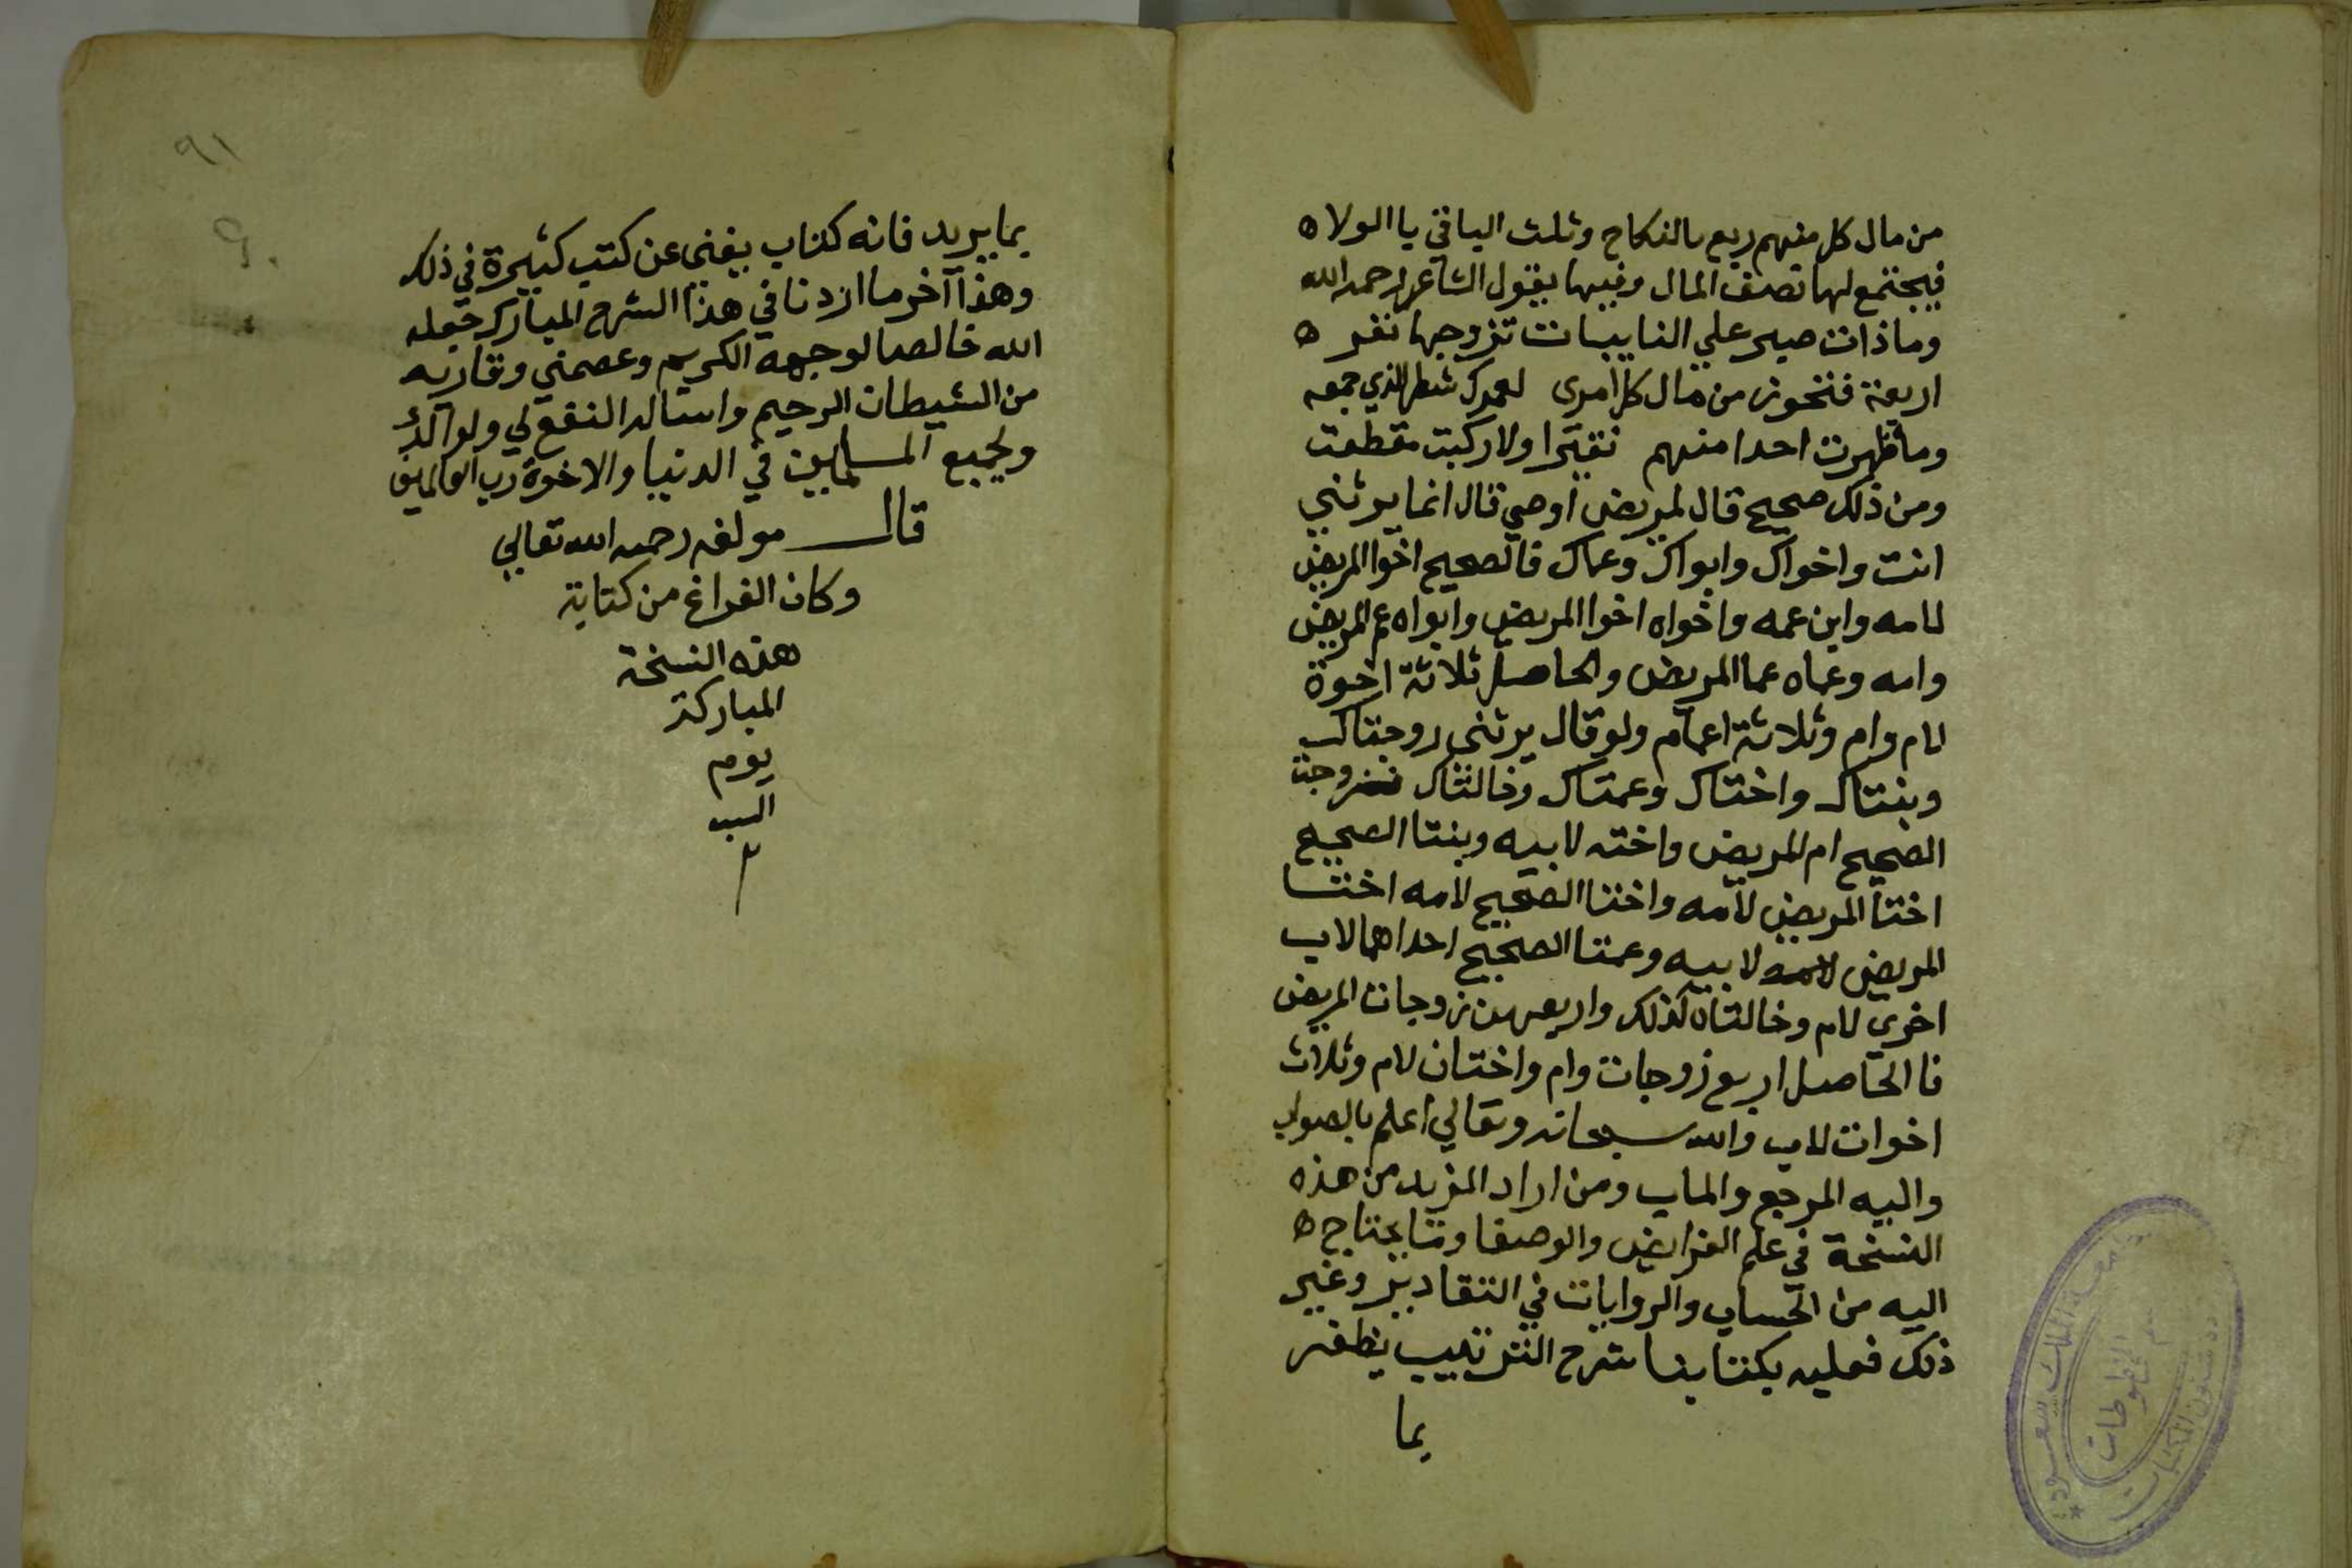 من مال كل منهم ربع بالنكاح وثلث الباقي با الولاه
فيجتمع لها نصف المال وفيها يقول الشاعر رحمه الله
وماذات صبر علي النايبات تزوجها نفر ه
اربعة فتحوز من مال كل امرى لعمرك شطر الذي جمعه
وما ظهرت احدا منهم نقيرا ولا ركبت مقطعت
ومن ذلك صحيح قال لمريض اوصي قال انما يرثني
انت واخواك وابواك وعماك فالصحيح اخو المريض
لامه وابن عمه واخواه اخوا المريض وابواه عم المريض
وامه وعماه عما المريض والحاصل ثلاثة اخوة
لام وام وثلاثة اعمام ولو قال يرثنى زوجتاك
وبنتاك واختاك وعمتاك وخالتاك فزوجتا
الصحيح ام المريض واخته لابيه وبنتا الصحيح
اختا المريض لامه واختا الصحيح لامه اختا
المريض لابيه وعمتا الصحيح احداهما لاب
اخرى لام وخالتاه كذلك واربعهن زوجات المريض
فا الحاصل اربع زوجات وام واختان لام وثلاث
اخوات لاب والله سبحانه وتعالي اعلم بالصواب
واليه المرجع والماب ومن اراد المزيد من هذه
النسخة في علم الفرايض والوصفا وما يحتاج ه
اليه من الحساب والروايات في التقادير وغير
ذلك فعليه بكتابنا شرح الترتيب يظفر
بما
٩١
٩٠
بما يريد فانه كتاب يغني عن كتب كثيرة في ذلك
وهذا آخر ما اردنا في هذا الشرح المبارك جعله
الله خالصا لوجهه الكريم وعصمني وقاريه
من الشيطان الرجيم واساله النفع لي ولوالدي
ولجميع المسلمين في الدنيا والاخرة رب العالمين
قال مولفه رحمه الله تعالي
وكان الفراغ من كتابة
هذه النسخة
المباركة
يوم
السب
م
جامعة الملك سعود
قسم المخطوطات
شئون المكتبات